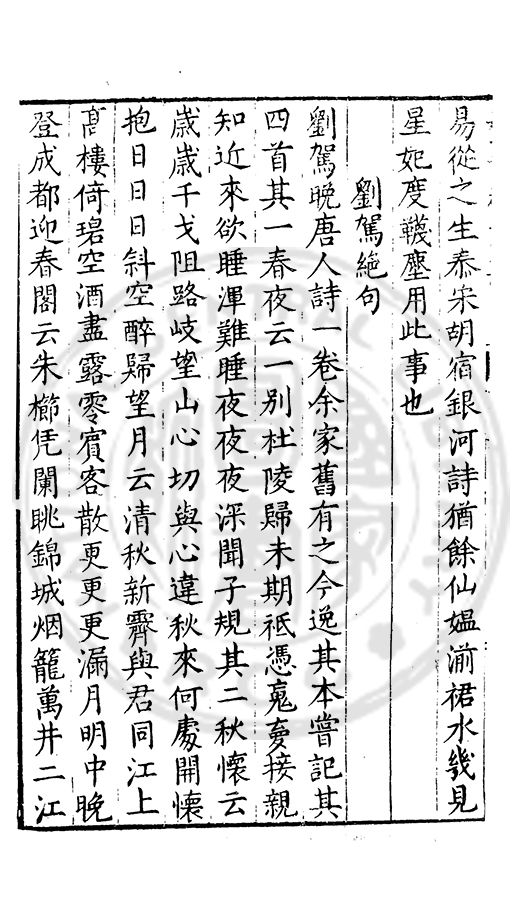 易從之生桼宋胡宿銀河詩猶餘仙媪湔裙水幾見
星妃度韈塵用此事也
劉駕絕句
劉駕晚唐人詩一卷余家舊有之今逸其本嘗記其
四首其一春夜云一別杜陵歸未期祗憑䰟夢接親
知近來欲睡渾難睡夜夜夜深聞子規其二秋懷云
歲歲干戈阻路岐望山心切與心違秋來何處開懷
抱日日日斜空醉歸望月云清秋新霽與君同江上
髙樓倚碧空酒盡露零賓客散更更更漏月明中晚
登成都迎春閣云朱櫛凭闌眺錦城烟籠萬井二江